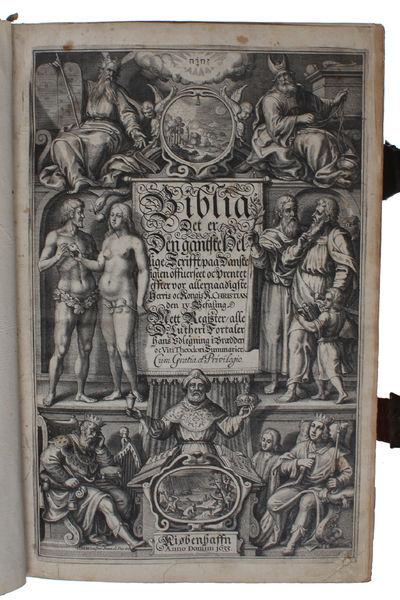 Biblia
Det er
Den gantske Hel-
lige Scrifft paa Danske
iglen offuerseet oc Prentet
effter vor allernaadigste
Herris oc Kongis K. CHRISTIAN
den iv Befaling.
Mett Register, alle
D. Lutheri Fortaler
hans Vdlegning i Bredden
oc Viti Theodori Summarier.
Cum Gratia et Privilegio
Kiøbenhaffn
Anno Domini 1633.